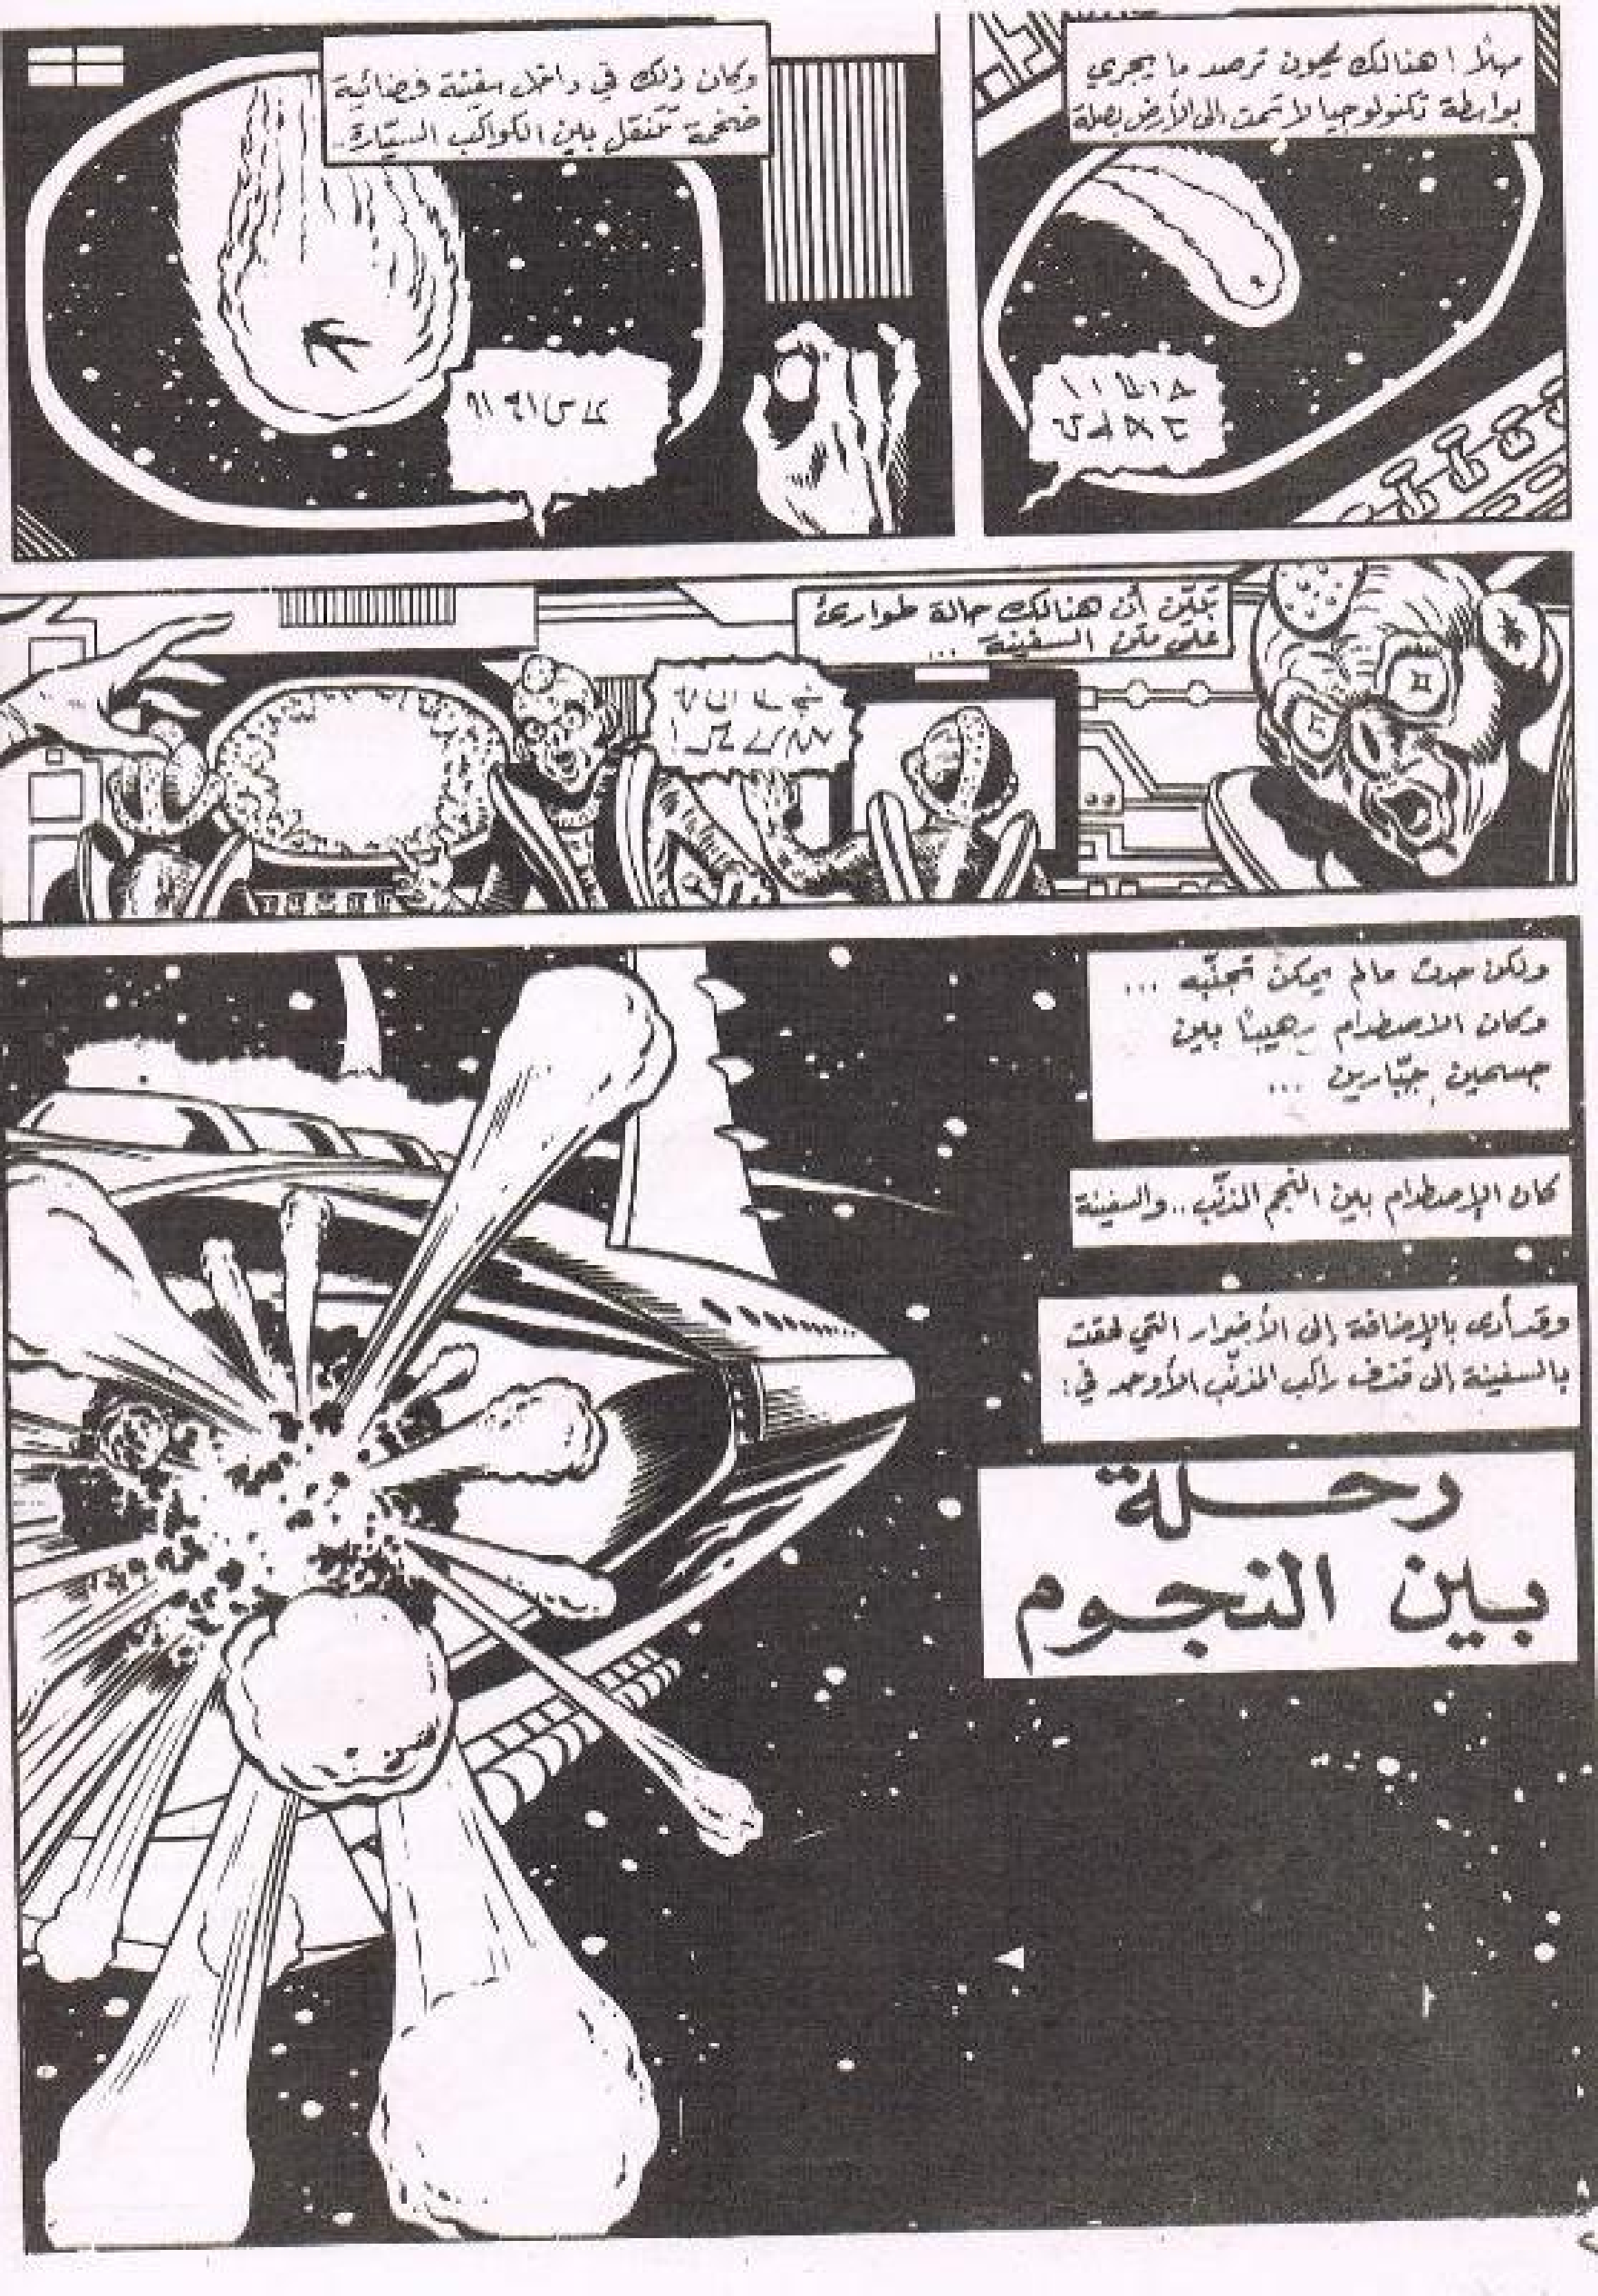 مهلاً ! هنالك عيون ترصد ما يجري
بواسطة تكنولوجيا لا تمت الى الأرض بصلة
وكان ذلك في داخل سفينة فضائية
ضخمة تتنقل بين الكواكب السيّارة..
تبيّن أن هنالك حالة طوارئ
على متن السفينة ...
ولكن حدث مالم يمكن تجنّبه ...
وكان الاصطدام رهيبًا بين
جسمين جبّارين ...
كان الإصطدام بين النجم المذنّب.. والسفينة
وقد أدى بالإضافة إلى الأضرار التي لحقت
بالسفينة إلى قذف راكب المذنّب الأوحد في:
رحلة
بين النجوم